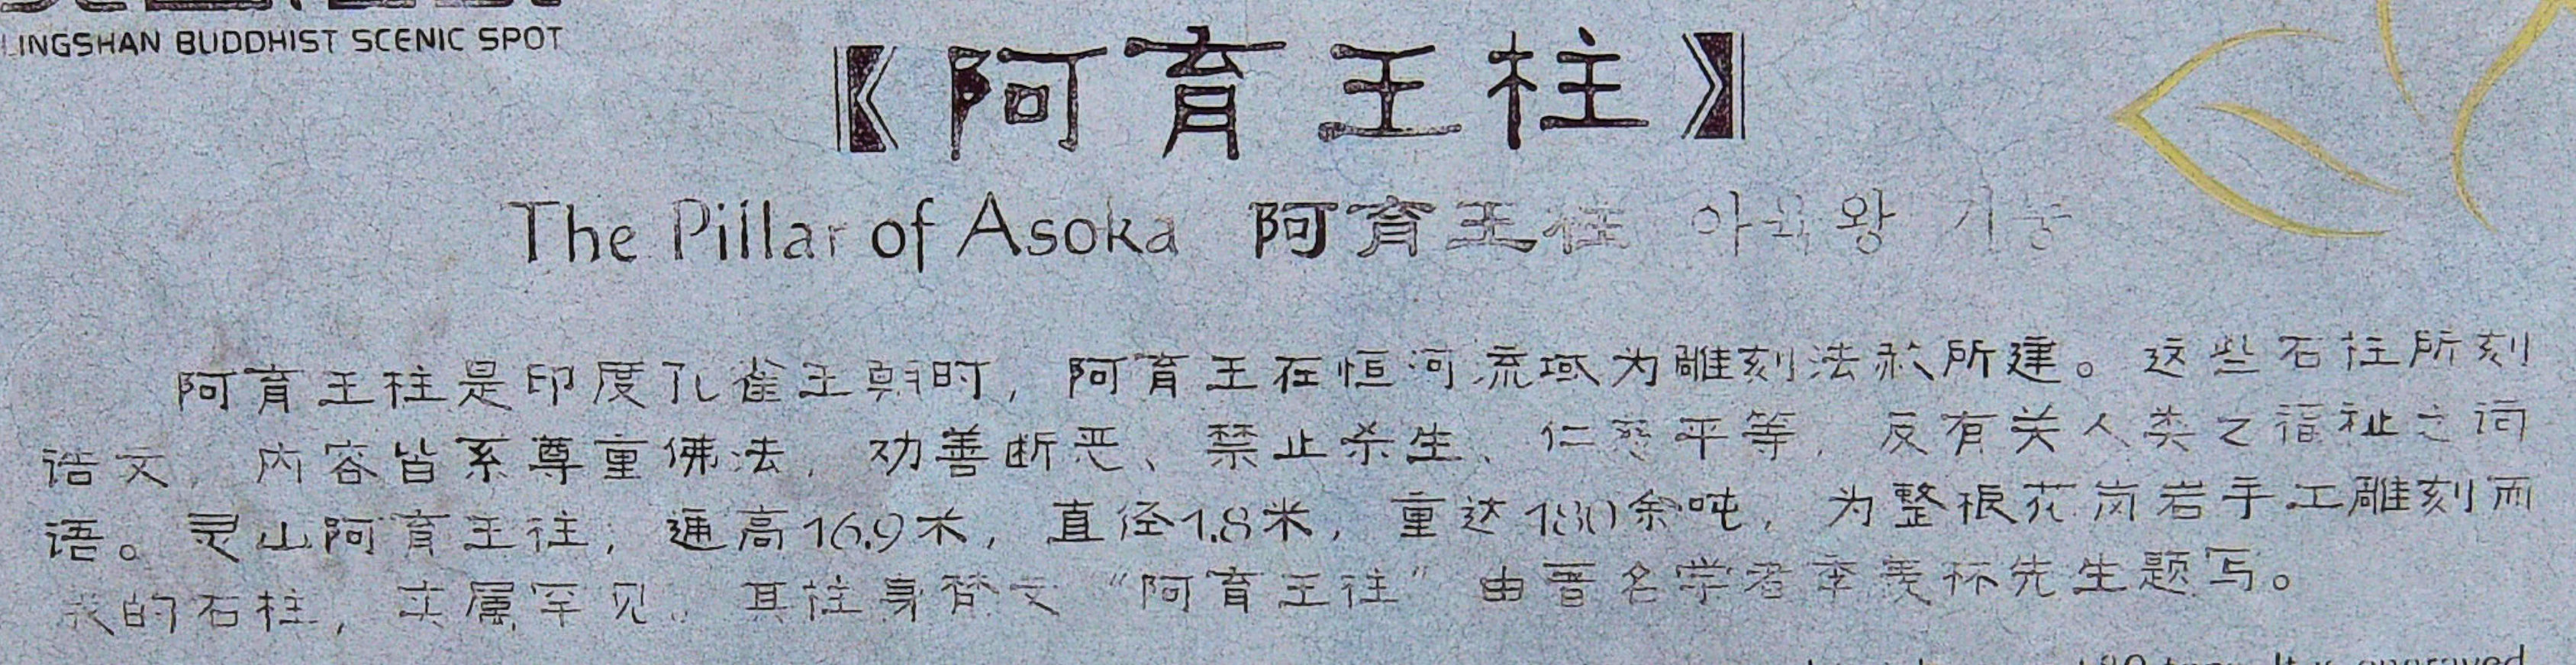 LINGSHAN BUDDHIST SCENIC SPOT
《阿育王柱》
The Pillar of Asoka 阿育王柱 아육왕 기둥
阿育王柱是印度孔雀王朝时，阿育王在恒河流域为雕刻法敕所建。这些石柱所刻
诰文，内容皆系尊重佛法，劝善断恶、禁止杀生、仁慈平等，及有关人类之福祉之词
语。灵山阿育王柱，通高16.9米，直径1.8米，重达180余吨，为整根花岗岩手工雕刻而
成的石柱，实属罕见。其柱身梵文“阿育王柱”由著名学者季羡林先生题写。